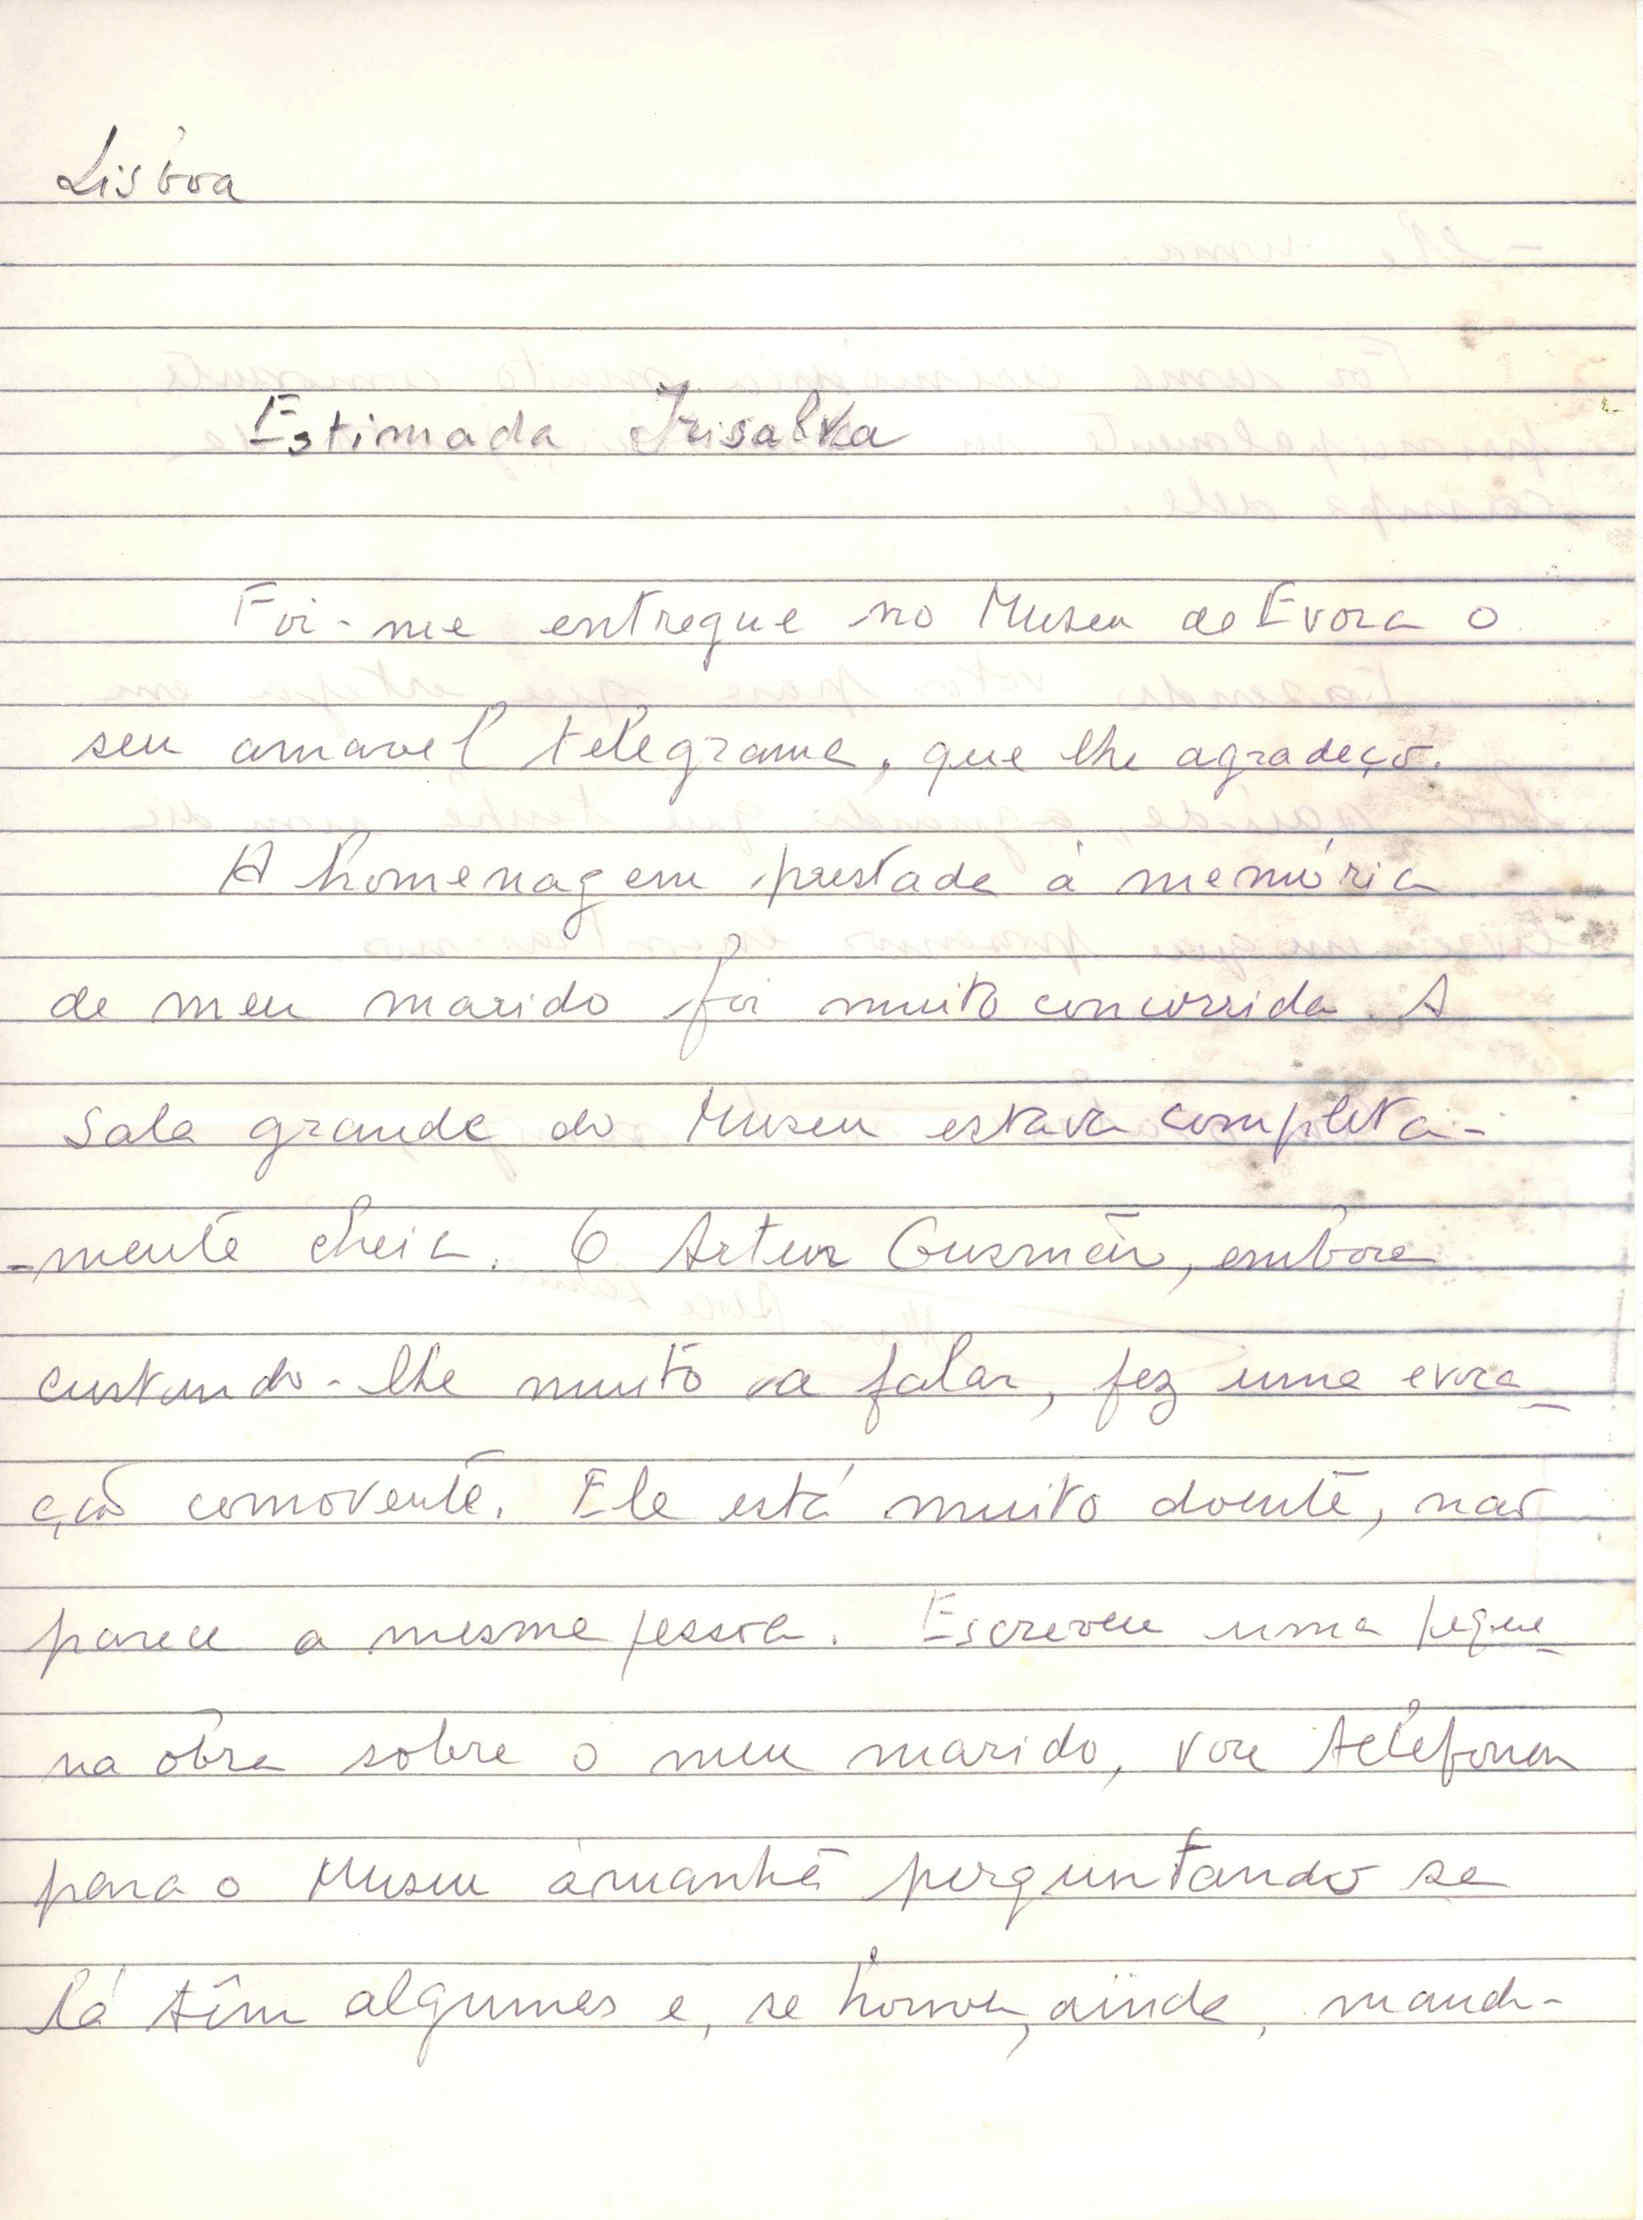 Lisboa
Estimada Irisalva
Foi-me entregue no Museu de Evora o
seu amavel telegrama, que lhe agradeço.
A homenagem prestada à memória
de meu marido foi muito concorrida. A
sala grande do Museu estava completa-
-mente cheia. O Artur Gusmão, embora
custando-lhe muito a falar, fez uma evoca_
ção comovente. Ele está muito doente, não
parece a mesma pessoa. Escreveu uma peque_
na obra sobre o meu marido, vou telefonar
para o Museu àmanhã perguntando se
lá têm algumas e, se houver, ainda, mando-